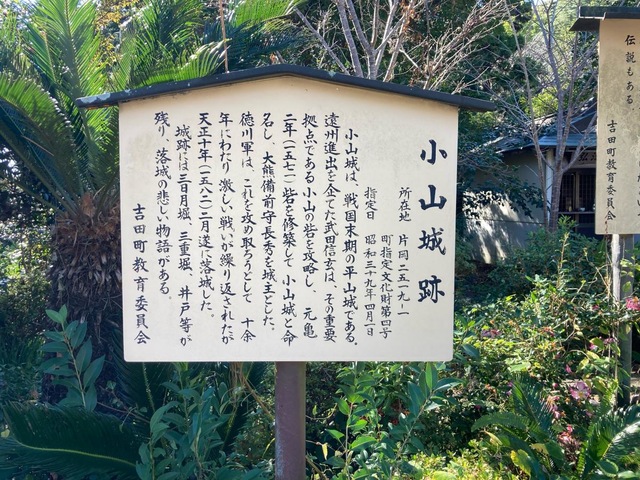 小山城跡
所在地 片岡二五一九ノ一
町指定文化財第四号
指定日 昭和三十九年四月一日
小山城は、戦国末期の平山城である。
遠州進出を企てた武田信玄は、その重要
拠点である小山の砦を攻略し、元亀
二年(一五七一)砦を修築して小山城と命
名し、大熊備前守長秀を城主とした。
徳川軍は、これを攻め取ろうとして十余
年にわたり激しい戦いが繰り返されたが
天正十年(一五八二)二月遂に落城した。
城跡には三日月堀、三重堀、井戸等が
残り、落城の悲しい物語がある。
吉田町教育委員会
伝説もある
吉田町教育委員会